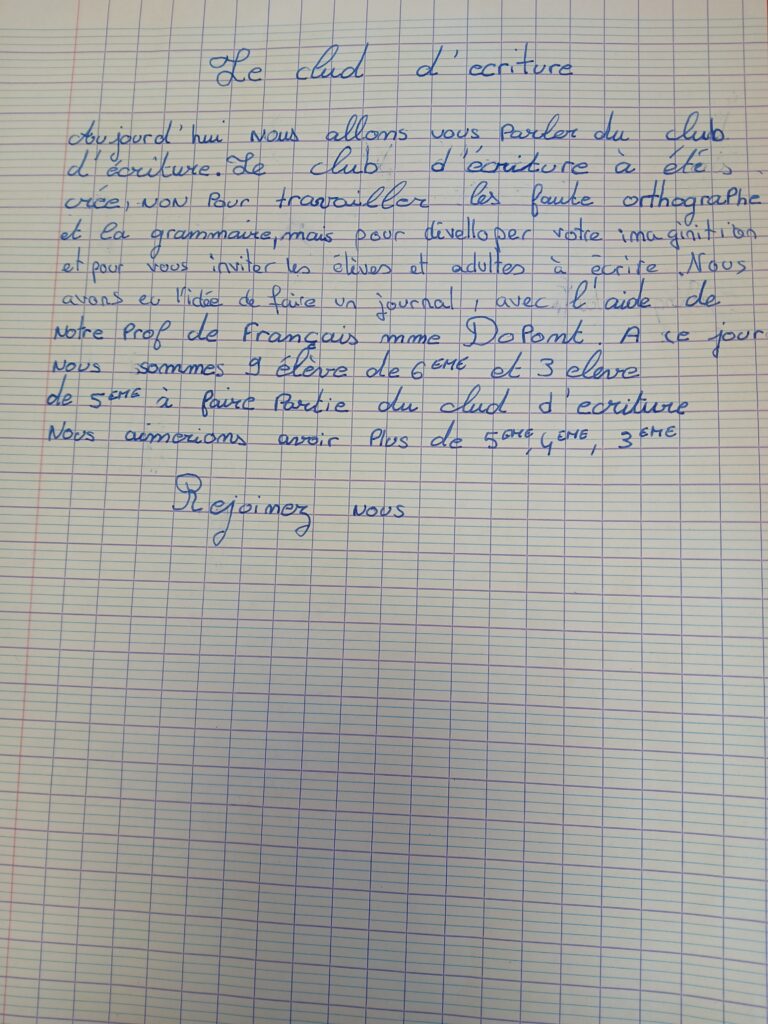 Le clud d'ecriture
Aujourd'hui nous allons vous parler du club
d'écriture. Le club d'écriture à été
crée, non pour travailler les faute orthographe
et la grammaire, mais pour dévelloper votre imaginition
et pour vous inviter les élèves et adultes à écrire. Nous
avons eu l'idée de faire un journal, avec l'aide de
notre prof de Français mme DoPont. A ce jour
nous sommes 9 élève de 6EME et 3 eleve
de 5EME à faire partie du clud d'ecriture
Nous aimerions avoir plus de 5EME, 4EME, 3EME
Rejoinez nous